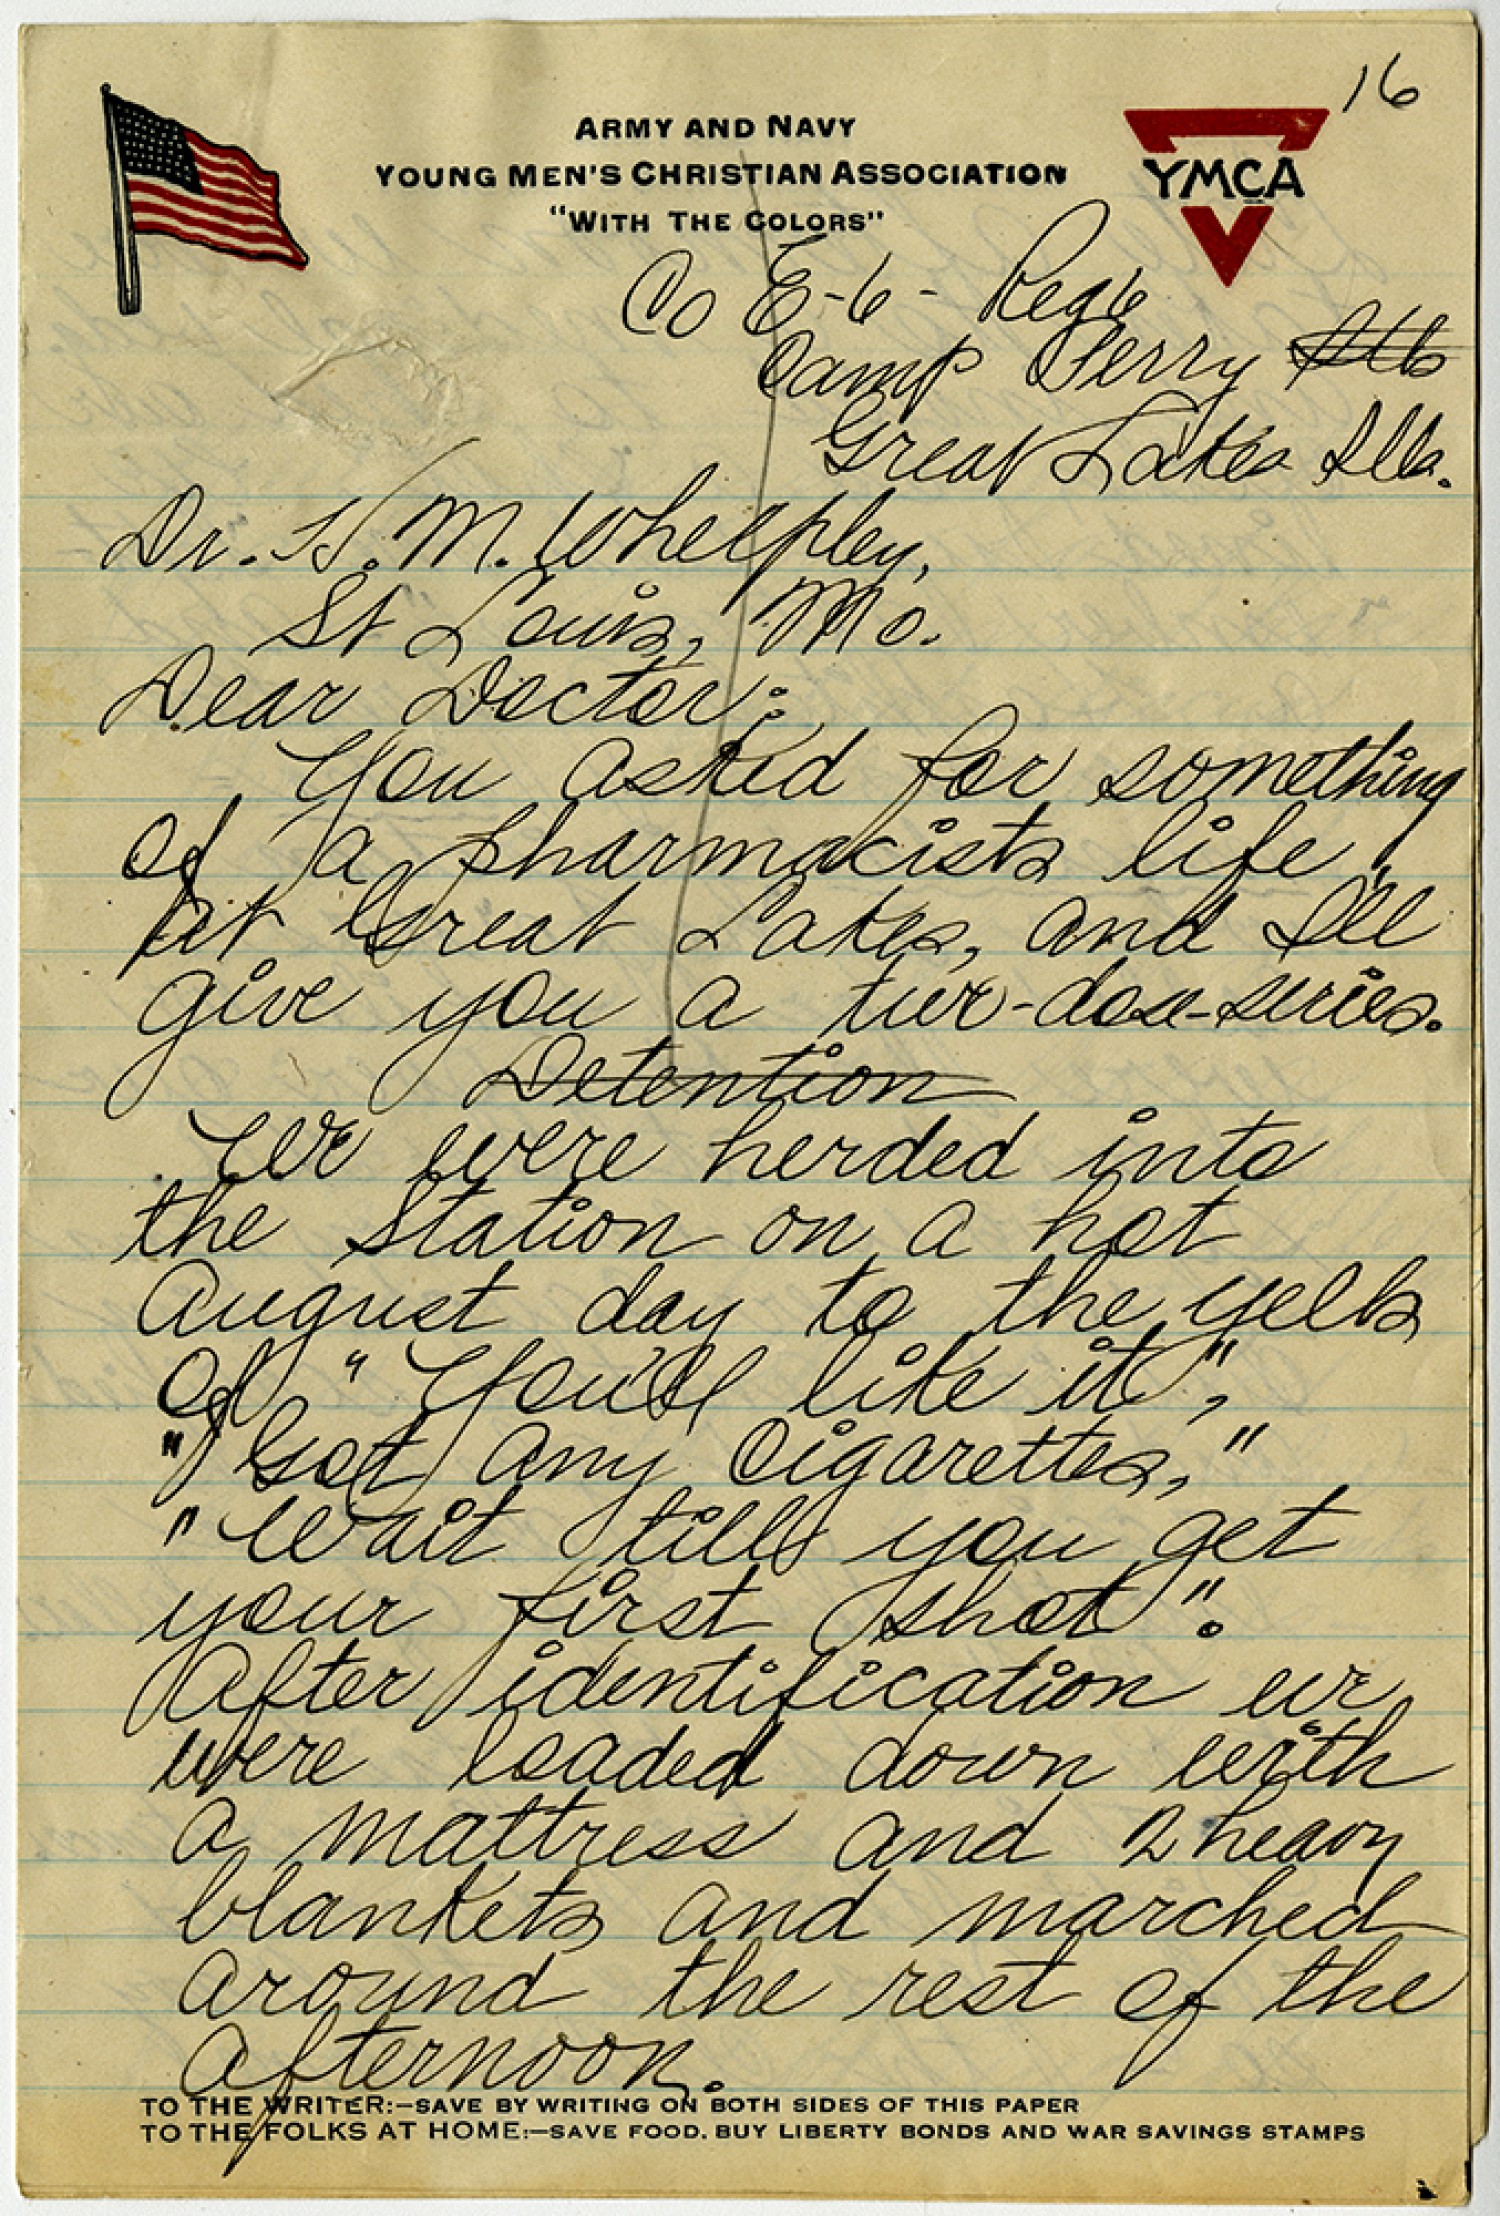 16
ARMY AND NAVY
YOUNG MEN'S CHRISTIAN ASSOCIATION
"WITH THE COLORS"
YMCA
Co E-6- Reg 6
Camp Perry Ills
Great Lakes Ills.
Dr. H. M. Whelpley,
St Louis, Mo.
Dear Doctor;
You asked for something
of a pharmacists life,
at Great Lakes, and Ill
give you a two-dose-series.
Detention
We were herded into
the Station on a hot
August day to the yells
of "You'll like it",
"Got any Cigarettes,"
"Wait till you get
your first shot".
After identification we
were loaded down with
a mattress and 2 heavy
blankets and marched
around the rest of the
afternoon.
TO THE WRITER:—SAVE BY WRITING ON BOTH SIDES OF THIS PAPER
TO THE FOLKS AT HOME:—SAVE FOOD. BUY LIBERTY BONDS AND WAR SAVINGS STAMPS